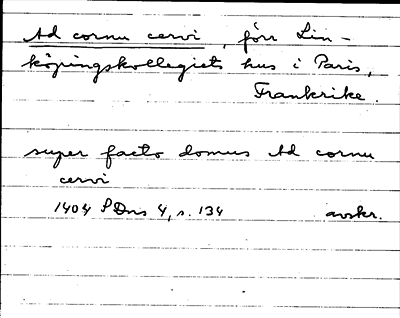 Ad cornu cervi, förr Lin-
köpingskollegiets hus i Paris,
Frankrike.
super facto domus Ad cornu
cervi
1404 SDns 4, s. 134 avskr.